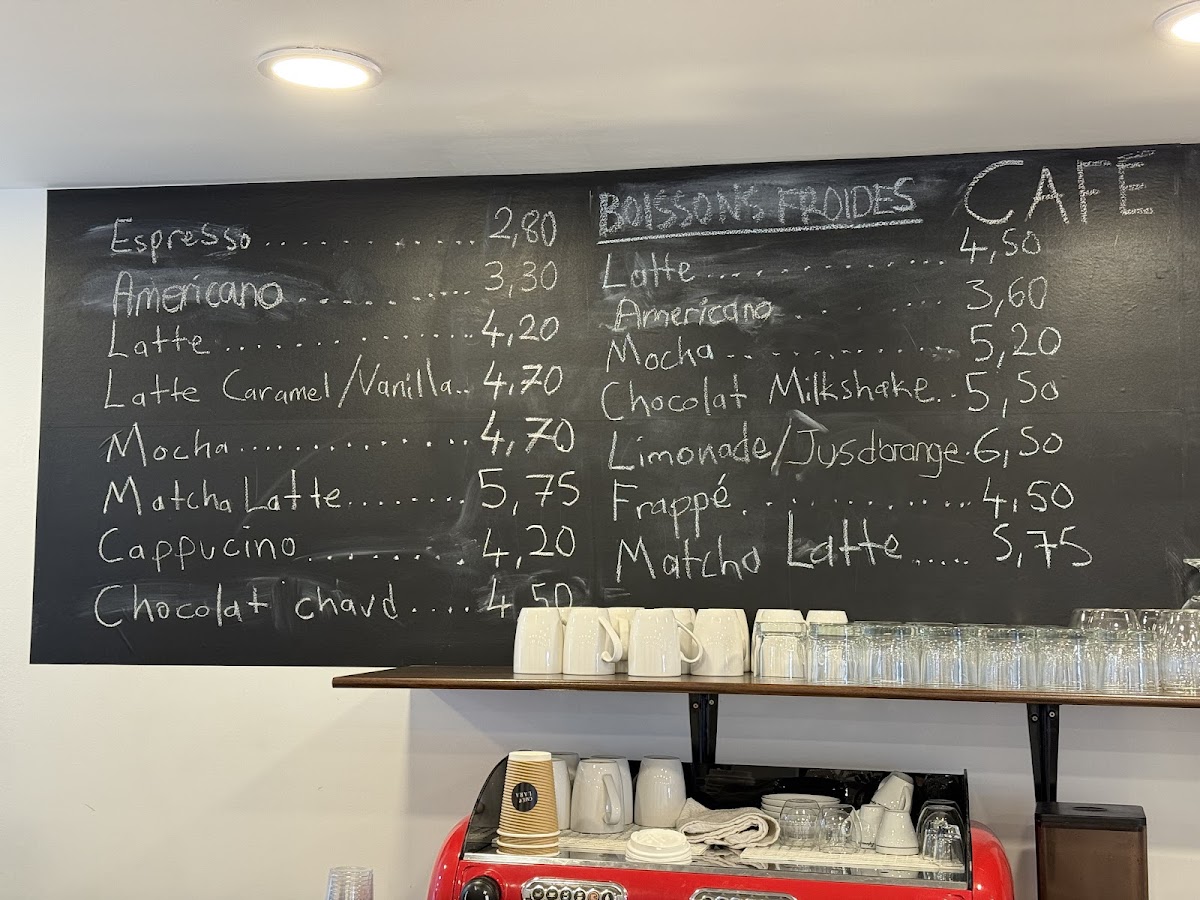 Espresso.................. 2,80
Americano................ 3,30
Latte.................... 4,20
Latte Caramel/Vanilla.. 4,70
Mocha................... 4,70
Matcha Latte......... 5,75
Cappucino............. 4,20
Chocolat chaud.... 4,50
CAFÉ
BOISSONS FROIDES
Latte................ 4,50
Americano....... 3,60
Mocha............... 5,20
Chocolat Milkshake.. 5,50
Limonade/Jusdorange. 6,50
Frappé............... 4,50
Matcha Latte..... 5,75
CAFÉ
LARA